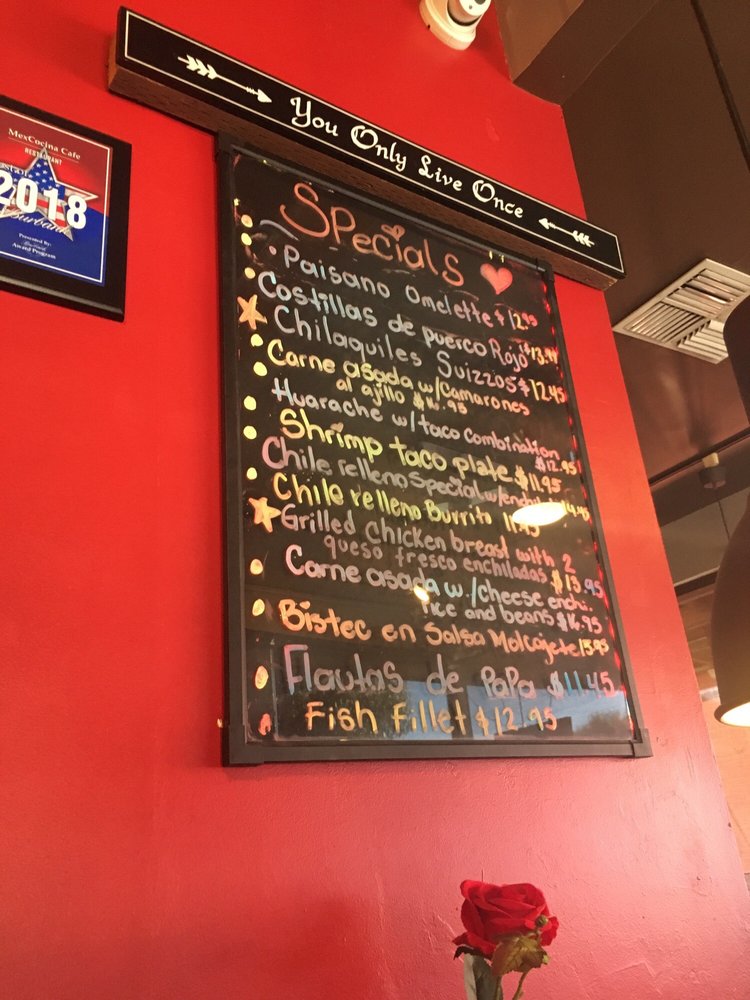 You Only Live Once
MexCocina Cafe
RESTAURANT
2018
Burbank
Presented By:
Award Program
Specials
Paisano Omelette $12.95
Costillas de puerco Rojo $13.99
Chilaquiles Suizzos $12.45
Carne asada w/Camarones
al ajillo $16.95
Huarache w/taco combination
$12.95
Shrimp taco plate $11.95
Chile relleno Special w/
Chile relleno Burrito 11.95
Grilled Chicken breast with 2
queso fresco enchiladas $15.95
Carne asada w./cheese enchi.
rice and beans $16.95
Bistec en Salsa Molcajete 15.95
Flautas de papa $11.45
Fish fillet $12.95